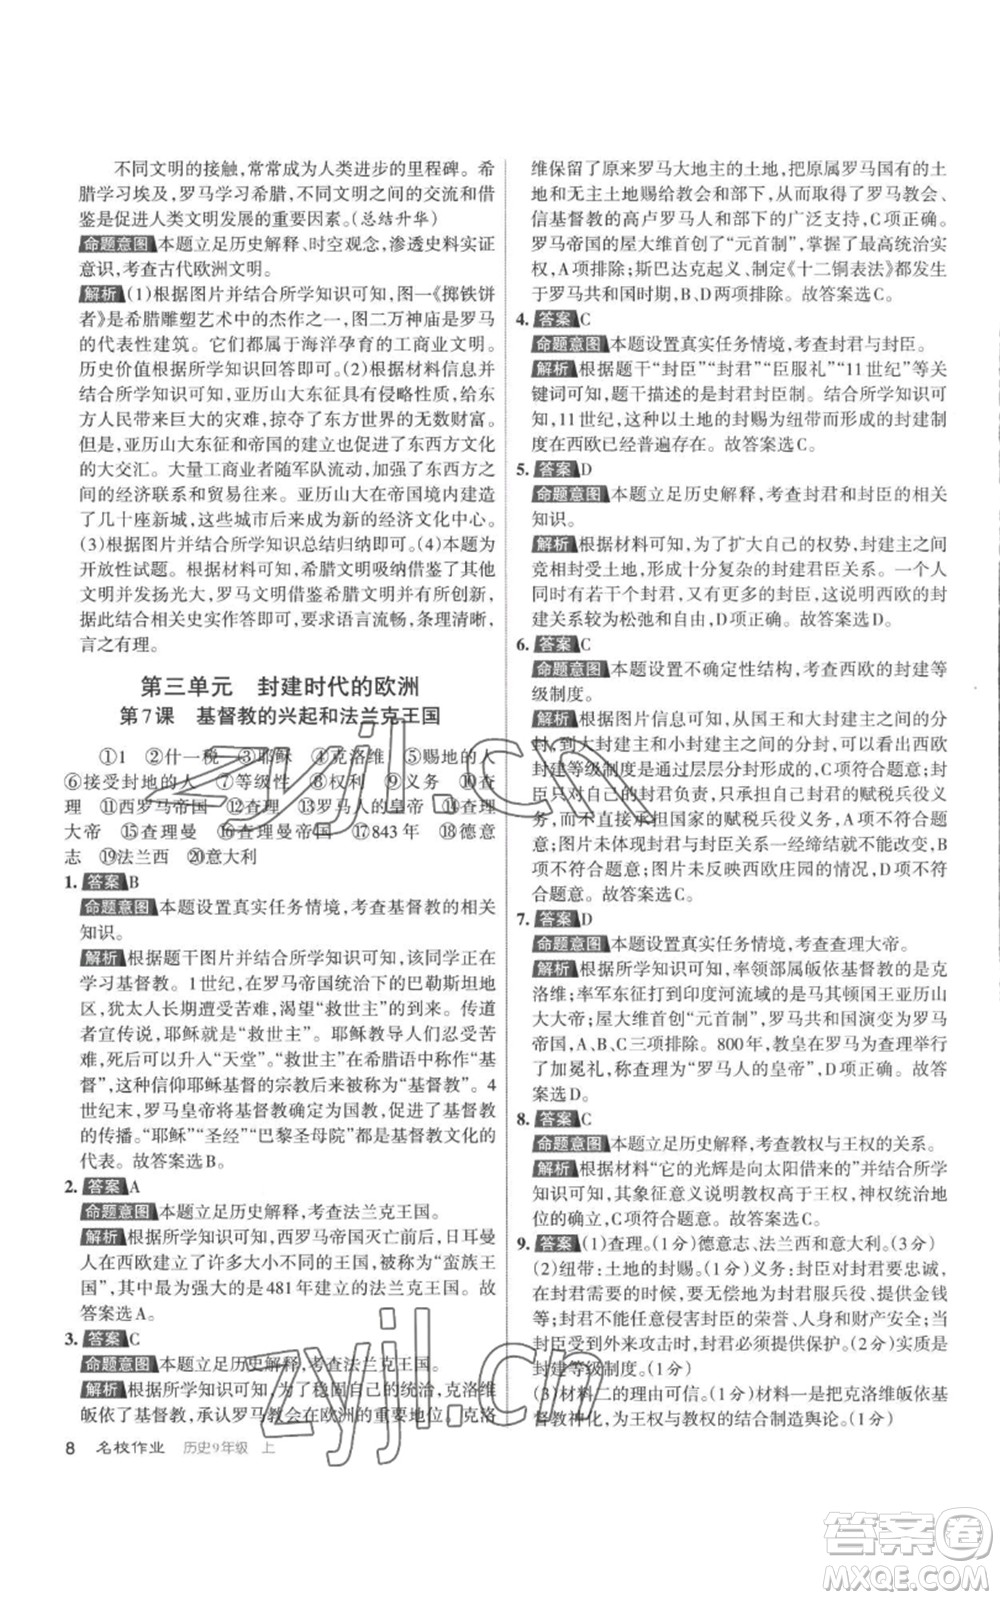 不同文明的接触，常常成为人类进步的里程碑。希
腊学习埃及，罗马学习希腊，不同文明之间的交流和借
鉴是促进人类文明发展的重要因素。（总结升华）
命题意图 本题立足历史解释、时空观念，渗透史料实证
意识，考查古代欧洲文明。
解析 (1)根据图片并结合所学知识可知，图一《掷铁饼
者》是希腊雕塑艺术中的杰作之一，图二万神庙是罗马
的代表性建筑。它们都属于海洋孕育的工商业文明。
历史价值根据所学知识回答即可。(2)根据材料信息并
结合所学知识可知，亚历山大东征具有侵略性，给东
方人民带来巨大的灾难，掠夺了东方世界的无数财富。
但是，亚历山大东征和帝国的建立也促成了东西方文化
的大交汇。大量工商业者随军队流动，加强了东西方之
间的经济联系和贸易往来。亚历山大在帝国境内建造
了几十座新城，这些城市后来兴起为新的经济文化中心。
(3)根据图片并结合所学知识总结归纳即可。(4)本题为
开放性试题。根据材料可知，希腊文明吸纳借鉴了其他
文明并发扬光大，罗马文明借鉴希腊文明并进行创新，
据此结合相关史实作答即可，要求语言流畅，条理清晰，
言之有理。
第三单元 封建时代的欧洲
第7课 基督教的兴起和法兰克王国
①1 ②什一税 ③耶稣 ④克洛维 ⑤赐地的人
⑥接受封地的人 ⑦等级性 ⑧权利 ⑨义务 ⑩查
理 ⑪西罗马帝国 ⑫查理 ⑬罗马人的皇帝 ⑭查理
大帝 ⑮查理曼 ⑯查理曼帝国 ⑰843年 ⑱德意
志 ⑲法兰西 ⑳意大利
1. 答案 B
命题意图 本题设置真实任务情境，考查基督教的相关
知识。
解析 根据题干图片并结合所学知识可知，该同学正在
学习基督教。1世纪，在罗马帝国统治下的巴勒斯坦地
区，犹太人长期遭受苦难，渴望“救世主”的来临。传道
者宣传说，耶稣就是“救世主”。耶稣要人们忍受苦
难，死后可以升入“天堂”。“救世主”在希腊语中称作“基
督”，这种信仰耶稣基督的宗教后来被称为“基督教”。4
世纪末，罗马皇帝将基督教确定为国教，促进了基督教
的传播。“耶稣”“圣经”“巴黎圣母院”都是基督教文化的
代表。故答案选B。
2. 答案 A
命题意图 本题立足历史解释，考查法兰克王国。
解析 根据所学知识可知，西罗马帝国灭亡前后，日耳曼
人在西欧建立了许多大小不同的王国，被称为“蛮族王
国”，其中最为强大的是481年建立的法兰克王国。故
答案选A。
3. 答案 C
命题意图 本题立足历史解释，考查法兰克王国。
解析 根据所学知识可知，为了稳固自己的统治，克洛维
皈依了基督教，承认罗马教会在欧洲的重要地位，克洛
8 名校作业 历史9年级 上
维保留了原来罗马大地主的土地，把原属罗马国有的土
地和无主土地赐给教会和部下，由此获得了罗马教会、
信基督教的高卢罗马人和部下的广泛支持，C项正确。
罗马帝国的屋大维首创了“元首制”，掌握了最高统治实
权，A项排除；斯巴达克起义、制定《十二铜表法》都发生
于罗马共和国时期，B、D两项排除。故答案选C。
4. 答案 C
命题意图 本题设置真实任务情境，考查封君与封臣。
解析 根据题干“封臣”“封君”“臣服礼”“11世纪”等关
键词可知，题干描述的是封君封臣制。结合所学知识可
知，11世纪，这种以土地的封赐为纽带而形成的封建制
度在西欧已经普遍存在。故答案选C。
5. 答案 D
命题意图 本题立足历史解释，考查封君和封臣的相关
知识。
解析 根据材料可知，为了扩大自己的权势，封建主之间
竞相封受土地，形成十分复杂的封建君臣关系。一个人
同时有若干个封君，又是其他人的封臣，这说明西欧的封
建关系较为松弛和自由，D项正确。故答案选D。
6. 答案 C
命题意图 本题设置不确定性结构，考查西欧的封建等
级制度。
解析 根据图片信息可知，从国王和大封建主之间的分
封，到大封建主和小封建主之间的分封，可以看出西欧
封建等级制度是通过层层分封形成的，C项符合题意；封
臣只对自己的封君负责，只承担自己封君的赋税兵役义
务，不可能承担国家的赋税兵役义务，A项不符合题意；
图片未体现封君与封臣关系一经缔结就不能改变，B项
不符合题意；图片未反映西欧庄园的繁荣景象，D项不
符合题意。故答案选C。
7. 答案 D
命题意图 本题设置真实任务情境，考查查理大帝。
解析 根据所学知识可知，率领部属皈依基督教的是克
洛维；率军东征打到印度河流域的是马其顿国王亚历山
大大帝；屋大维首创“元首制”，罗马共和国演变为罗马
帝国，A、B、C三项排除。800年，教皇在罗马为查理举行
了加冕礼，称查理为“罗马人的皇帝”，D项正确。故答
案选D。
8. 答案 C
命题意图 本题立足历史解释，考查教权与王权的关系。
解析 根据材料“它的光辉是向太阳借来的”并结合所学
知识可知，其象征意义说明教权高于王权，处于统治地
位的立场，C项符合题意。故答案选C。
9. 答案 (1)查理。(1分)德意志、法兰西和意大利。(3分)
(2)纽带：土地的封赐。(1分)义务：封臣对封君要忠诚，
在需要的时候，要无偿地为封君服兵役，并提供金钱
等；封君不能任意侵害封臣的荣誉、人身和财产安全；当
封臣受到外来攻击时，封君必须提供保护。(2分)实质：
封建等级制度。(1分)
(3)材料二的理由可信。(1分)材料一是把克洛维皈依基
督教神化，为王权与教权的结合制造舆论。(1分)